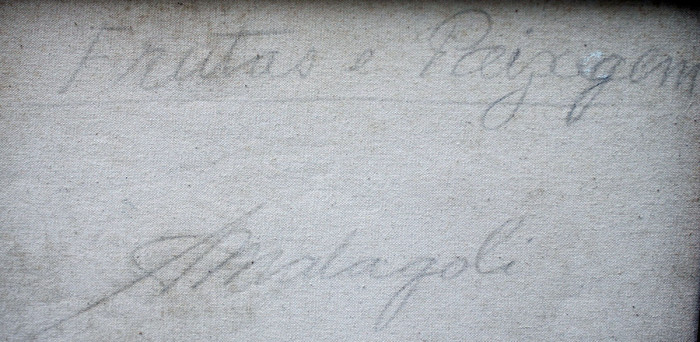 Frutas e Paizagem
AMalagoli